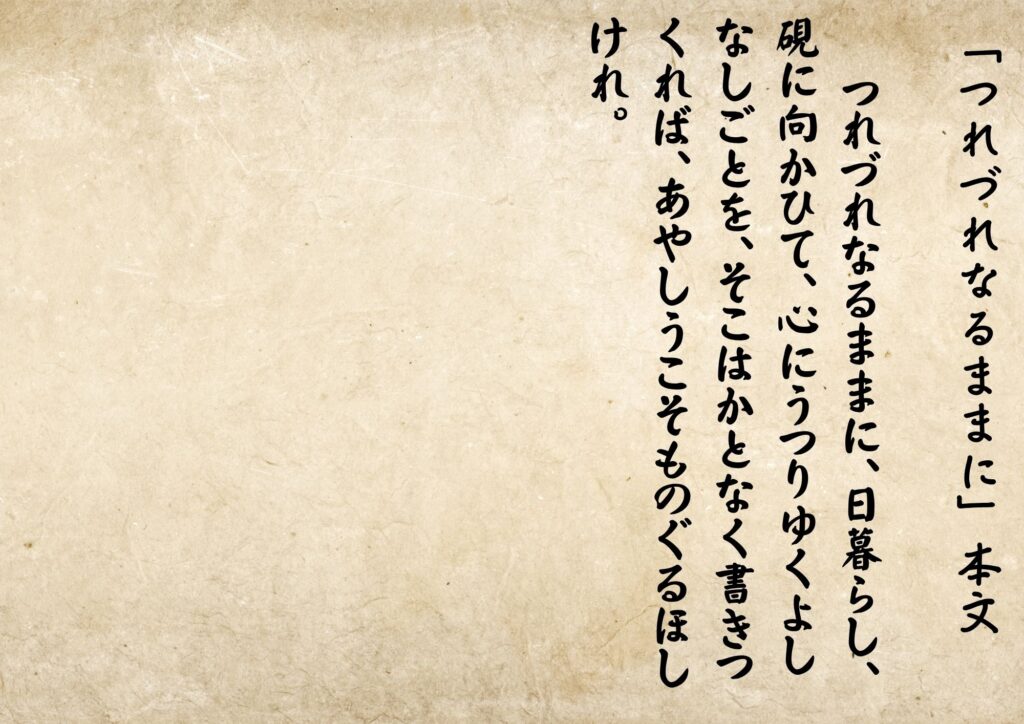 「つれづれなるままに」 本文
つれづれなるままに、日暮らし、
硯に向かひて、心にうつりゆくよし
なしごとを、そこはかとなく書きつ
くれば、あやしうこそものぐるほし
けれ。